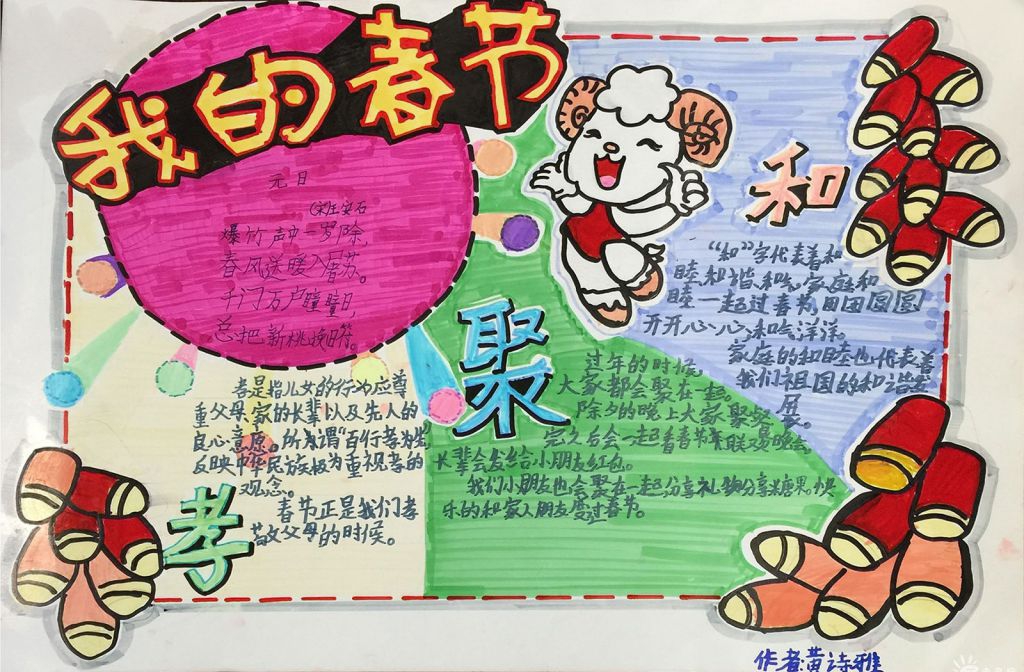 我的春节
元日
(宋)王安石
爆竹声中一岁除,
春风送暖入屠苏。
千门万户瞳瞳日,
总把新桃换旧符。
孝是指儿女的行为应尊
重父母、家的长辈以及先人的
良心意愿。所为谓"百行孝为先"
反映中华民族极为重视孝的
观念。
春节正是我们孝
敬父母的时候。
孝
聚
过年的时候,
大家都会聚在一起。
除夕的晚上大家聚餐
完之后会一起看春节联欢晚会,
长辈会发给小朋友红包。
我们小朋友也会聚在一起,分享礼物分享糖果。快
乐的和家人朋友度过春节。
和
"和"字代表着和
睦和谐,和气,家庭和
睦一起过春节,团团圆圆
开开心心,和气洋洋。
家庭的和睦也代表着
我们祖国的和谐发
展。
作者:黄诗雅